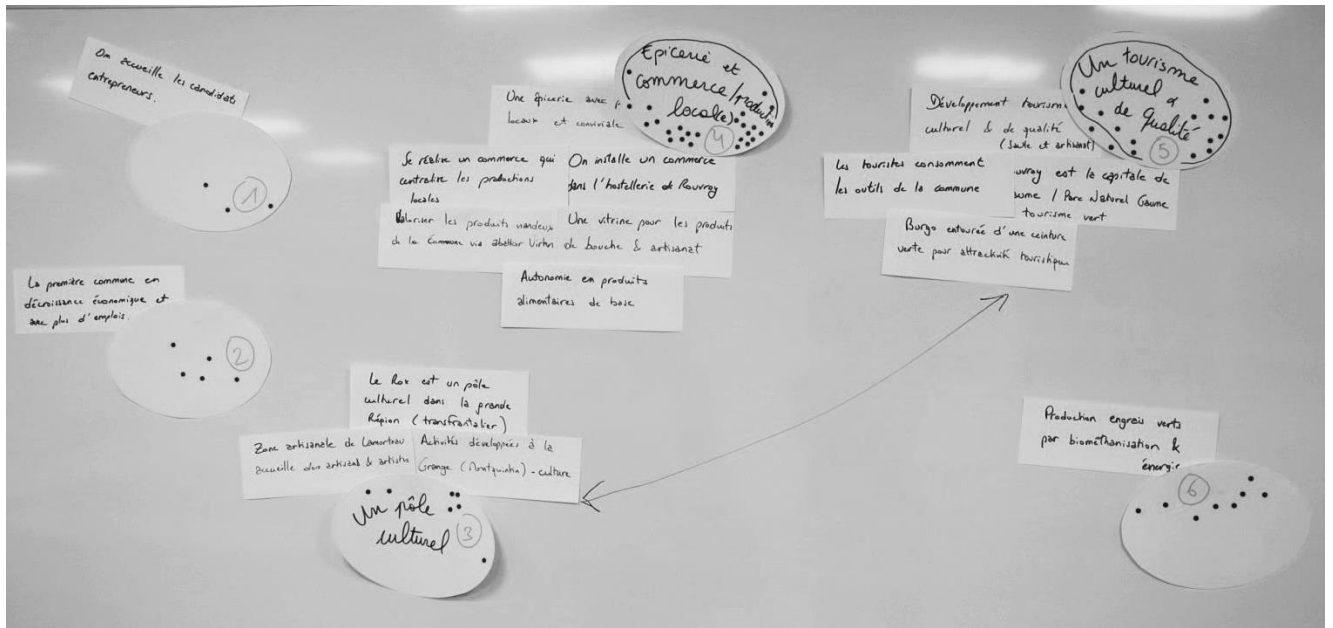 On accueille les candidats
entrepreneurs.
1
La première commune en
décroissance économique et
avec plus d'emplois.
2
Le Rox est un pôle
culturel dans la grande
Région (transfrontalier)
Zone artisanale de Lamorteau
accueille des artisans & artistes
Activités développées à la
Grange (Montquintin) - culture
Un pôle
culturel
3
Epicerie et
commerce/
locale)
4
Une épicerie avec
locaux et conviviale
Se réalise un commerce qui
centralise les productions
locales
On installe un commerce
dans l'hostellerie de Rouvroy
Valoriser les produits viandeux
de la Commune via abattoir Virton
Une vitrine pour les produits
de bouche & artisanat
Autonomie en produits
alimentaires de base
Un tourisme
culturel &
de qualité
5
Développement tourism
culturel & de qualité
(Jaute et artisanat)
Les touristes consomment
les outils de la commune
ouvroy est la capitale de
aume / Parc Naturel Gaume
tourisme vert
Burgo entourée d'une ceinture
verte pour attractivité touristique
Production engrais verts
par biométhanisation &
énergie
6